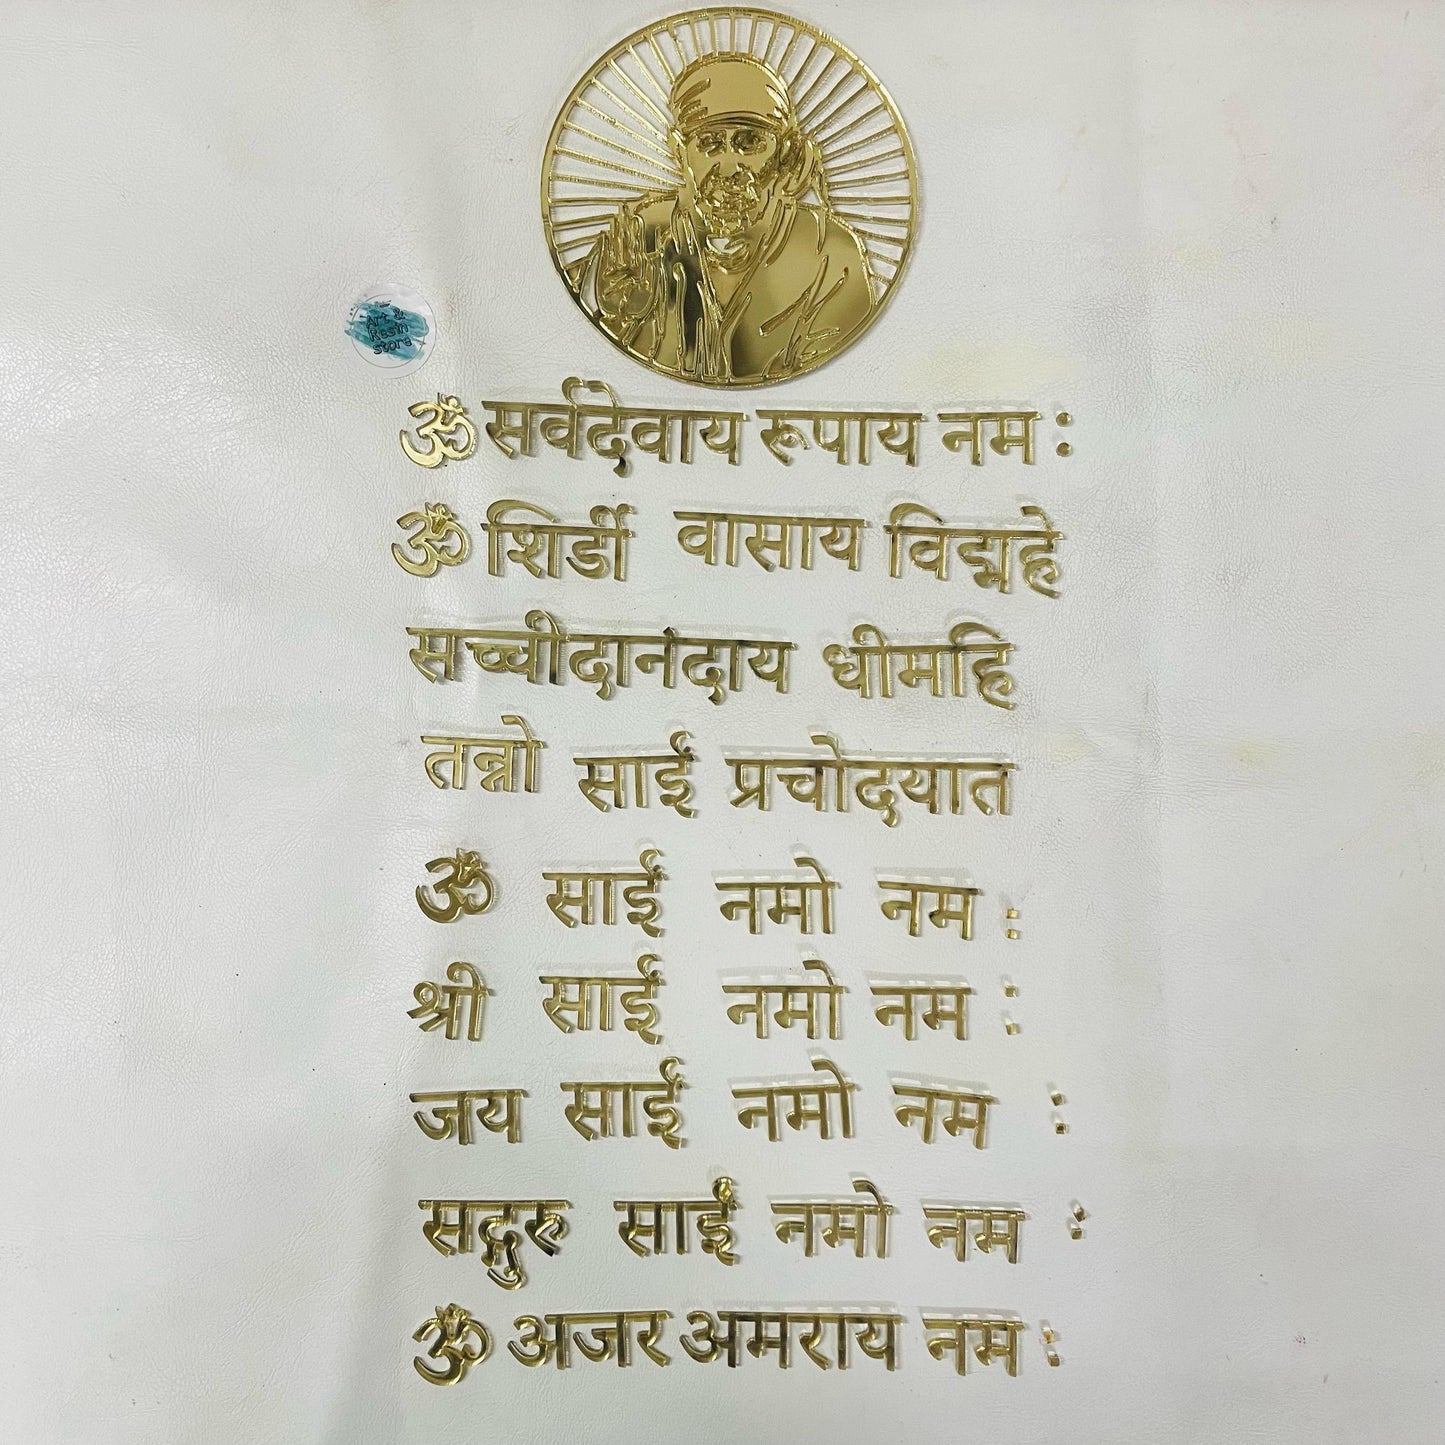 Art &
Resin
Store
ॐ सर्वदेवाय रूपाय नमः
ॐ शिर्डी वासाय विद्महे
सच्चीदानंदाय धीमहि
तन्नो साईं प्रचोदयात
ॐ साईं नमो नमः
श्री साईं नमो नमः
जय साईं नमो नमः
सद्गुरु साईं नमो नमः
ॐ अजर अमराय नमः